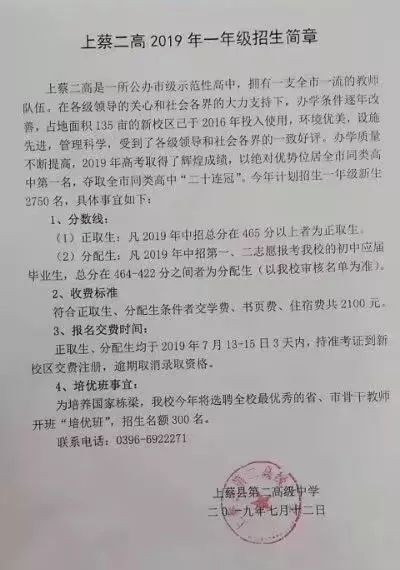 上蔡二高 2019 年一年级招生简章
上蔡二高是一所公办市级示范性高中，拥有一支全市一流的教师
队伍。在各级领导的关心和社会各界的大力支持下，办学条件逐年改
善，占地面积 135 亩的新校区已于 2016 年投入使用，环境优美，设施
先进，管理科学，受到了各级领导和社会各界的一致好评。办学质量
不断提高，2019 年高考取得了辉煌成绩，以绝对优势位居全市同类高
中第一名，夺取全市同类高中“二十连冠”。今年计划招生一年级新生
2750 名，具体事宜如下：
1、分数线：
（1）正取生：凡 2019 年中招总分在 465 分以上者为正取生。
（2）分配生：凡 2019 年中招第一、二志愿报考我校的初中应届
毕业生，总分在 464-422 分之间者为分配生（以我校审核名单为准）。
2、收费标准
符合正取生、分配生条件者交学费、书页费、住宿费共 2100 元。
3、报名交费时间：
正取生、分配生均于 2019 年 7 月 13-15 日 3 天内，持准考证到新
校区交费注册，逾期取消录取资格。
4、培优班事宜：
为培养国家栋梁，我校今年将选聘全校最优秀的省、市骨干教师
开班“培优班”，招生名额 300 名。
联系电话：0396-6922271
上蔡县第二高级中学
二〇一九年七月十二日